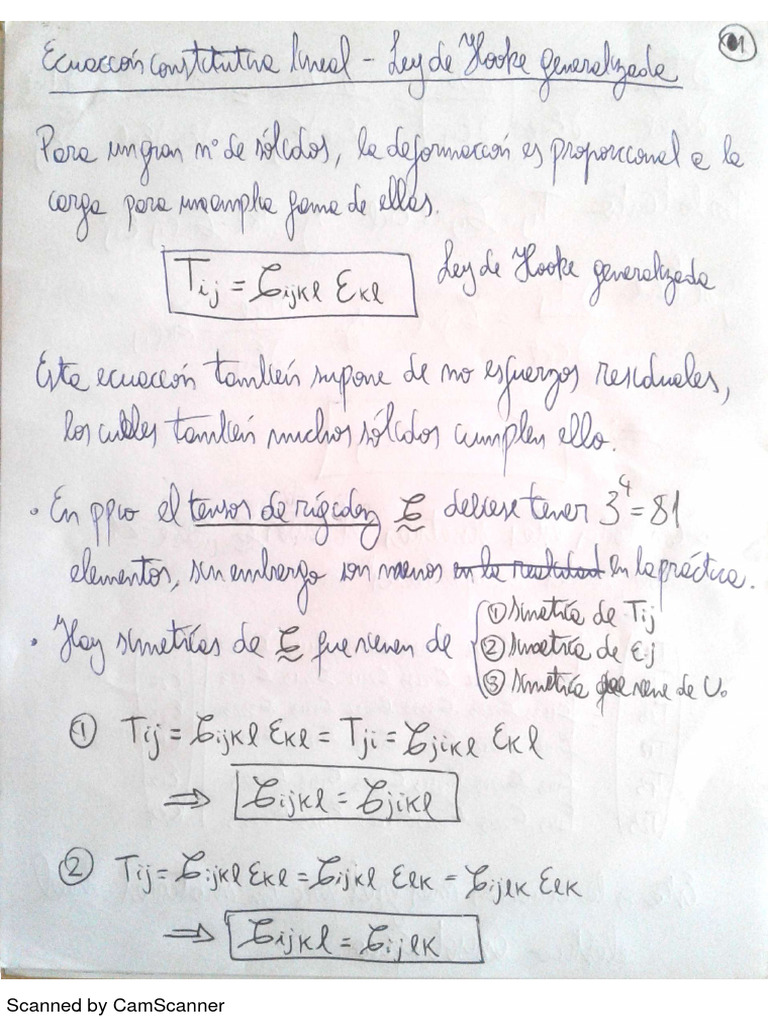 Ecuación constitutiva lineal - Ley de Hooke generalizada
01
Para un gran nº de sólidos, la deformación es proporcional a la
carga para una amplia gama de ellas.
Tij = Cijkl Ekl Ley de Hooke generalizada
Esta ecuación también supone de no esfuerzos residuales,
los cuales también muchos sólidos cumplen ello.
• En ppio el tensor de rigidez C debiese tener 3^4 = 81
elementos, sin embargo son menos en la realidad en la práctica.
• Hay simetrías de C que vienen de
① simetría de Tij
② simetría de Eij
③ simetría que viene de Uo
① Tij = Cijkl Ekl = Tji = Cjikl Ekl
⇒ Cijkl = Cjikl
② Tij = Cijkl Ekl = Cijkl Elk = Cijlk Elk
⇒ Cijkl = Cijlk
Scanned by CamScanner